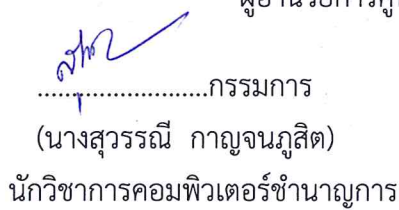 ........................กรรมการ
(นางสุวรรณี กาญจนภูสิต)
นักวิชาการคอมพิวเตอร์ชำนาญการ